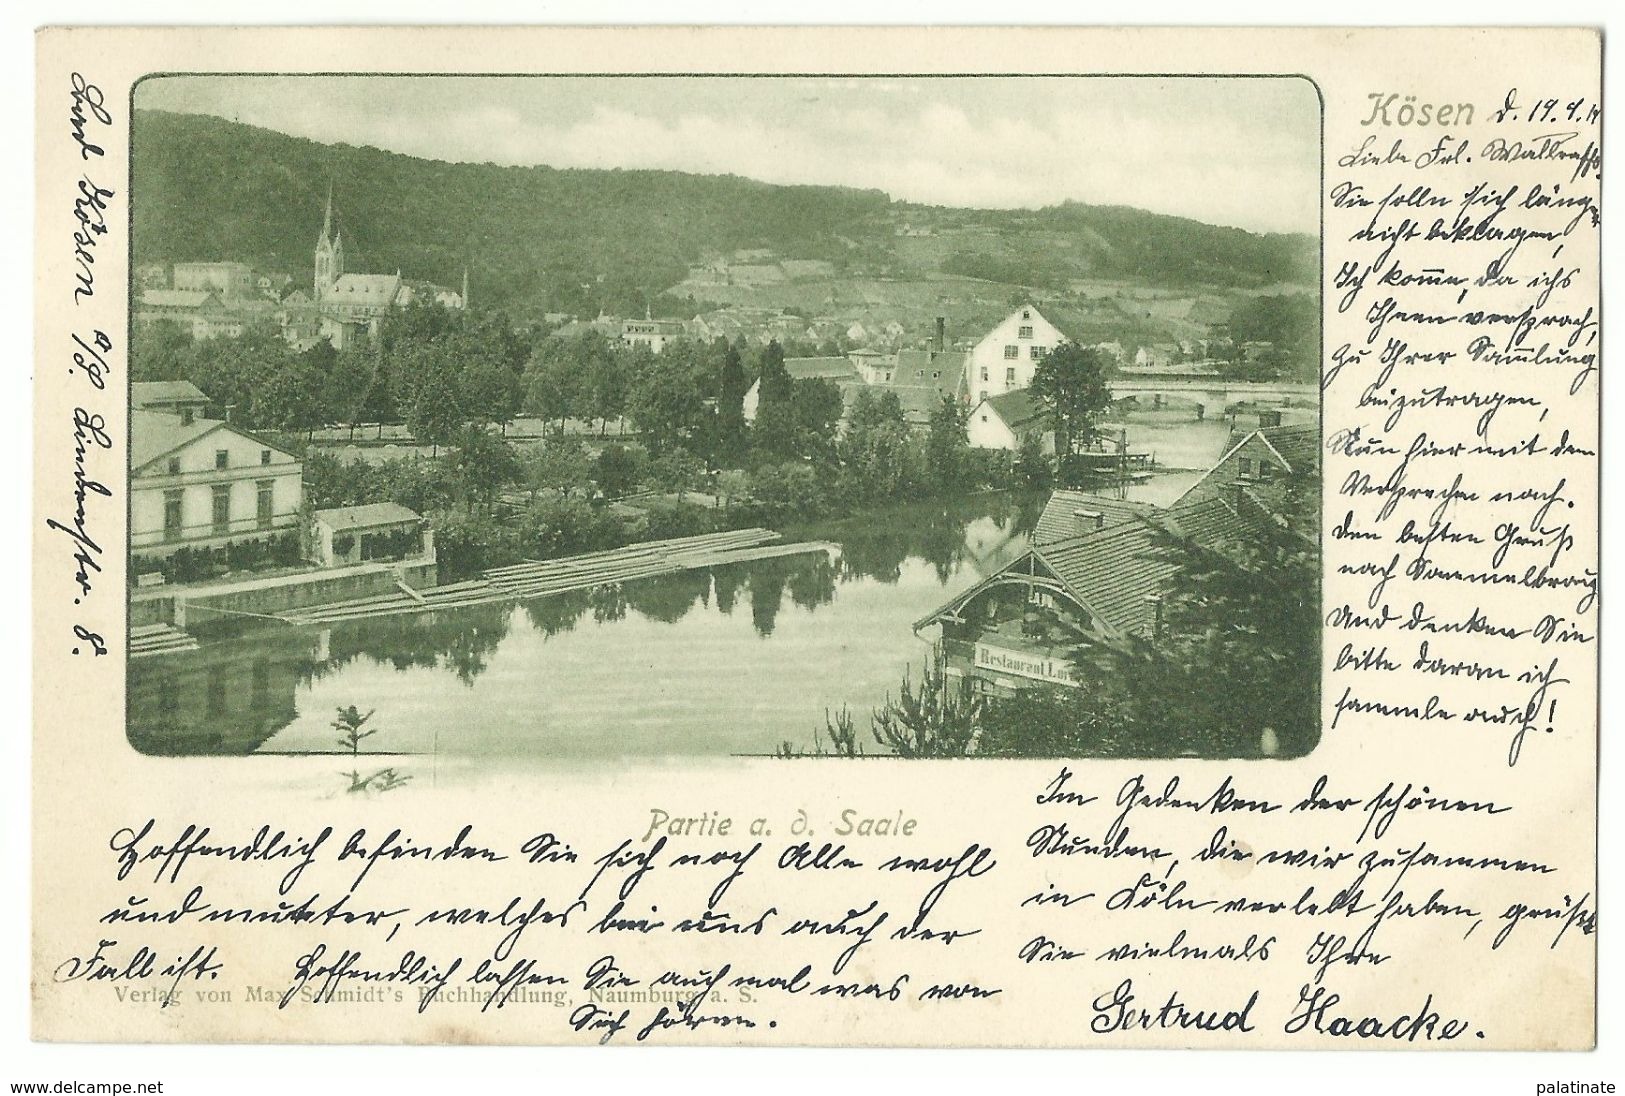 Kösen d. 19. 9.
Liebe Frl. Wallraff.
Sie sollen sich länger
nicht beklagen,
Ich komme, da ichs
Ihnen versprach,
Zu Ihrer Sammlung
beizutragen,
Nun hier mit dem
Versprechen nach.
Den besten Gruß
nach Sammelbrauch
Und denken Sie
bitte daran ich
sammle auch!
Im Gedenken der schönen
Stunden, die wir zusammen
in Köln verlebt haben, grüßt
Sie vielmals Ihre
Gertrud Haacke.
Partie a. d. Saale
Hoffendlich befinden Sie sich noch Alle wohl
und munter, welches bei uns auch der
Fall ist. Hoffendlich lassen Sie auch mal was von
Sich hören.
Verlag von Max Schmidt's Buchhandlung, Naumburg a. S.
Bad Kösen a/S. Lindenstr. 8.
Restaurant
www.delcampe.net
palatinate